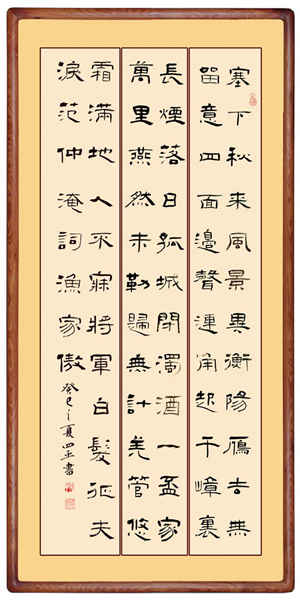 塞下秋來風景異衡陽鴈去無
留意四面邊聲連角起千嶂裏
長煙落日孤城閉濁酒一盃家
萬里燕然未勒歸無計羌管悠
霜滿地人不寐將軍白髮征夫
淚范仲淹詞漁家傲
癸巳之夏四書